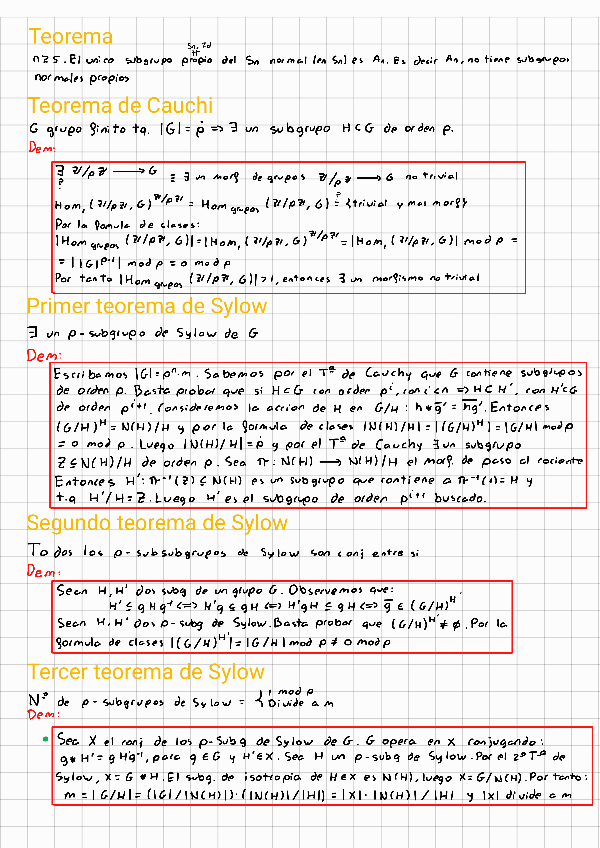 Teorema
Sn, Id
n≥5. El unico subgrupo propio del Sn normal (en Sn) es An. Es decir An, no tiene subgrupos
normales propios
Teorema de Cauchi
G grupo finito tq. |G| = ṗ => ∃ un subgrupo H⊂G de orden p.
Dem:
∃ ℤ/pℤ ⟶ G ≡ ∃ un morf de grupos ℤ/pℤ ⟶ G no trivial
Hom, (ℤ/pℤ, G)^ℤ/pℤ = Hom grupos (ℤ/pℤ, G) = {trivial y mas morf}
Por la fomula de clases:
|Hom grupos (ℤ/pℤ, G)| = |Hom, (ℤ/pℤ, G)^ℤ/pℤ| = |Hom, (ℤ/pℤ, G)| mod p =
= ||G|^p-1| mod p = 0 mod p
Por tanto |Hom grupos (ℤ/pℤ, G)| > 1, entonces ∃ un morfismo no trivial
Primer teorema de Sylow
∃ un p-subgrupo de Sylow de G
Dem:
Escribamos |G| = pⁿ.m. Sabemos por el Tª de Cauchy que G contiene subgrupos
de orden p. Basta probar que si H⊂G con orden pⁱ, con i<n => H⊂H', con H'⊂G
de orden pⁱ⁺¹. Consideremos la accion de H en G/H: h*g̅' = h̅g̅'. Entonces
(G/H)^H = N(H)/H y por la formula de clases |N(H)/H| = |(G/H)^H| = |G/H| mod p
= 0 mod p. Luego |N(H)/H| = ṗ y por el Tª de Cauchy ∃ un subgrupo
Z ≤ N(H)/H de orden p. Sea π: N(H) ⟶ N(H)/H el morf. de paso al cociente
Entonces H': π⁻¹(Z) ≤ N(H) es un subgrupo que contiene a π⁻¹(1) = H y
t.q H'/H = Z. Luego H' es el subgrupo de orden pⁱ⁺¹ buscado.
Segundo teorema de Sylow
Todos los p-subsubgrupos de Sylow son conj entre si
Dem:
Sean H, H' dos subg de un grupo G. Observemos que:
H' ≤ gHg⁻¹ <=> H'g ≤ gH <=> H'gH ≤ gH <=> g̅ ∈ (G/H)^H'
Sean H, H' dos p-subg de Sylow. Basta probar que (G/H)^H' ≠ ∅. Por la
formula de clases |(G/H)^H'| = |G/H| mod p ≠ 0 mod p
Tercer teorema de Sylow
Nº de p-subgrupos de Sylow = { 1 mod p
Divide a m
Dem:
Sea X el conj de los p-subg de Sylow de G. G opera en X conjugando:
g*H' = gH'g⁻¹, para g∈G y H'∈X. Sea H un p-subg de Sylow. Por el 2º Tª de
Sylow, X = G*H. El subg. de isotropia de H∈X es N(H), luego X = G/N(H). Por tanto:
m = |G/H| = (|G|/|N(H)|)·(|N(H)|/|H|) = |X|·|N(H)|/|H| y |X| divide a m